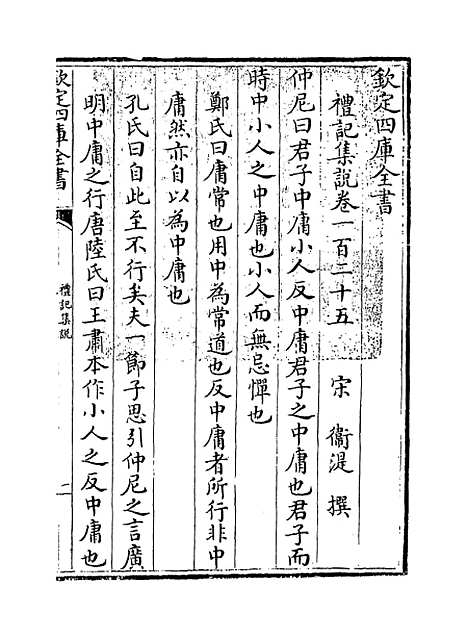 欽定四庫全書
禮記集說卷一百二十五
宋 衞湜 撰
仲尼曰君子中庸小人反中庸君子之中庸也君子而
時中小人之中庸也小人而無忌憚也
鄭氏曰庸常也用中為常道也反中庸者所行非中
庸然亦自以為中庸也
孔氏曰自此至不行矣夫一節子思引仲尼之言廣
明中庸之行唐陸氏曰王肅本作小人之反中庸也
欽定四庫全書
禮記集說